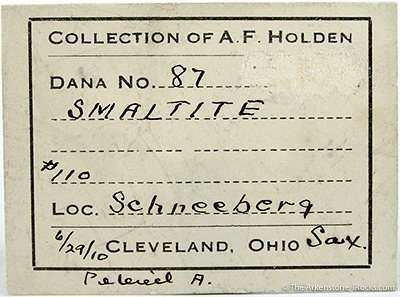 COLLECTION OF A.F. HOLDEN
DANA NO. 87
SMALTITE
#110
LOC. Schneeberg
6/29/10 CLEVELAND, OHIO Sax.
A.
© TheArkenstone, iRocks.com